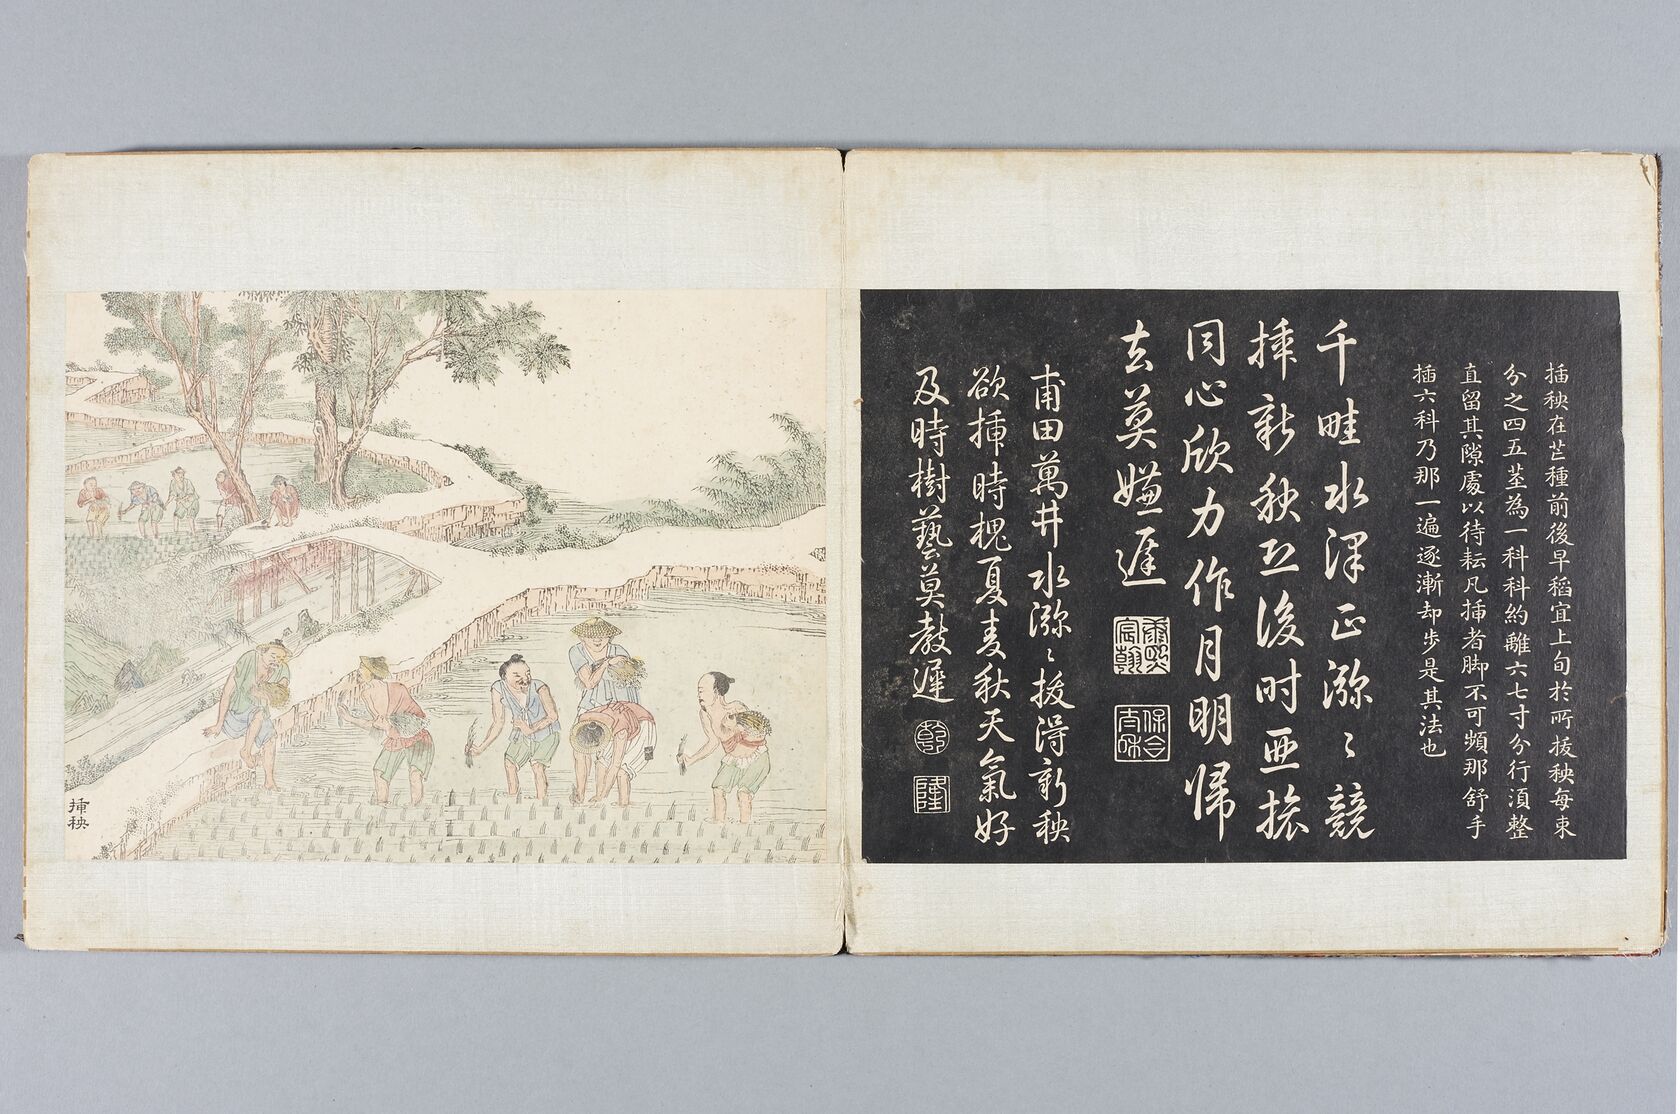 插秧在芒種前後早稻宜上旬於所拔秧每束
分之四五莖為一科科約離六七寸分行湏整
直留其隙處以待耘凡插者脚不可頻那舒手
插六科乃那一遍逐漸却步是其法也
千畦水澤正瀰〻競
挿新秧恐後时亜旅
同心欣力作月明歸
去莫嫌遲
康熙宸翰
保合太和
甫田萬井水瀰〻拔得新秧
欲挿時槐夏麦秋天氣好
及時樹藝莫教遲
乾
隆
挿秧